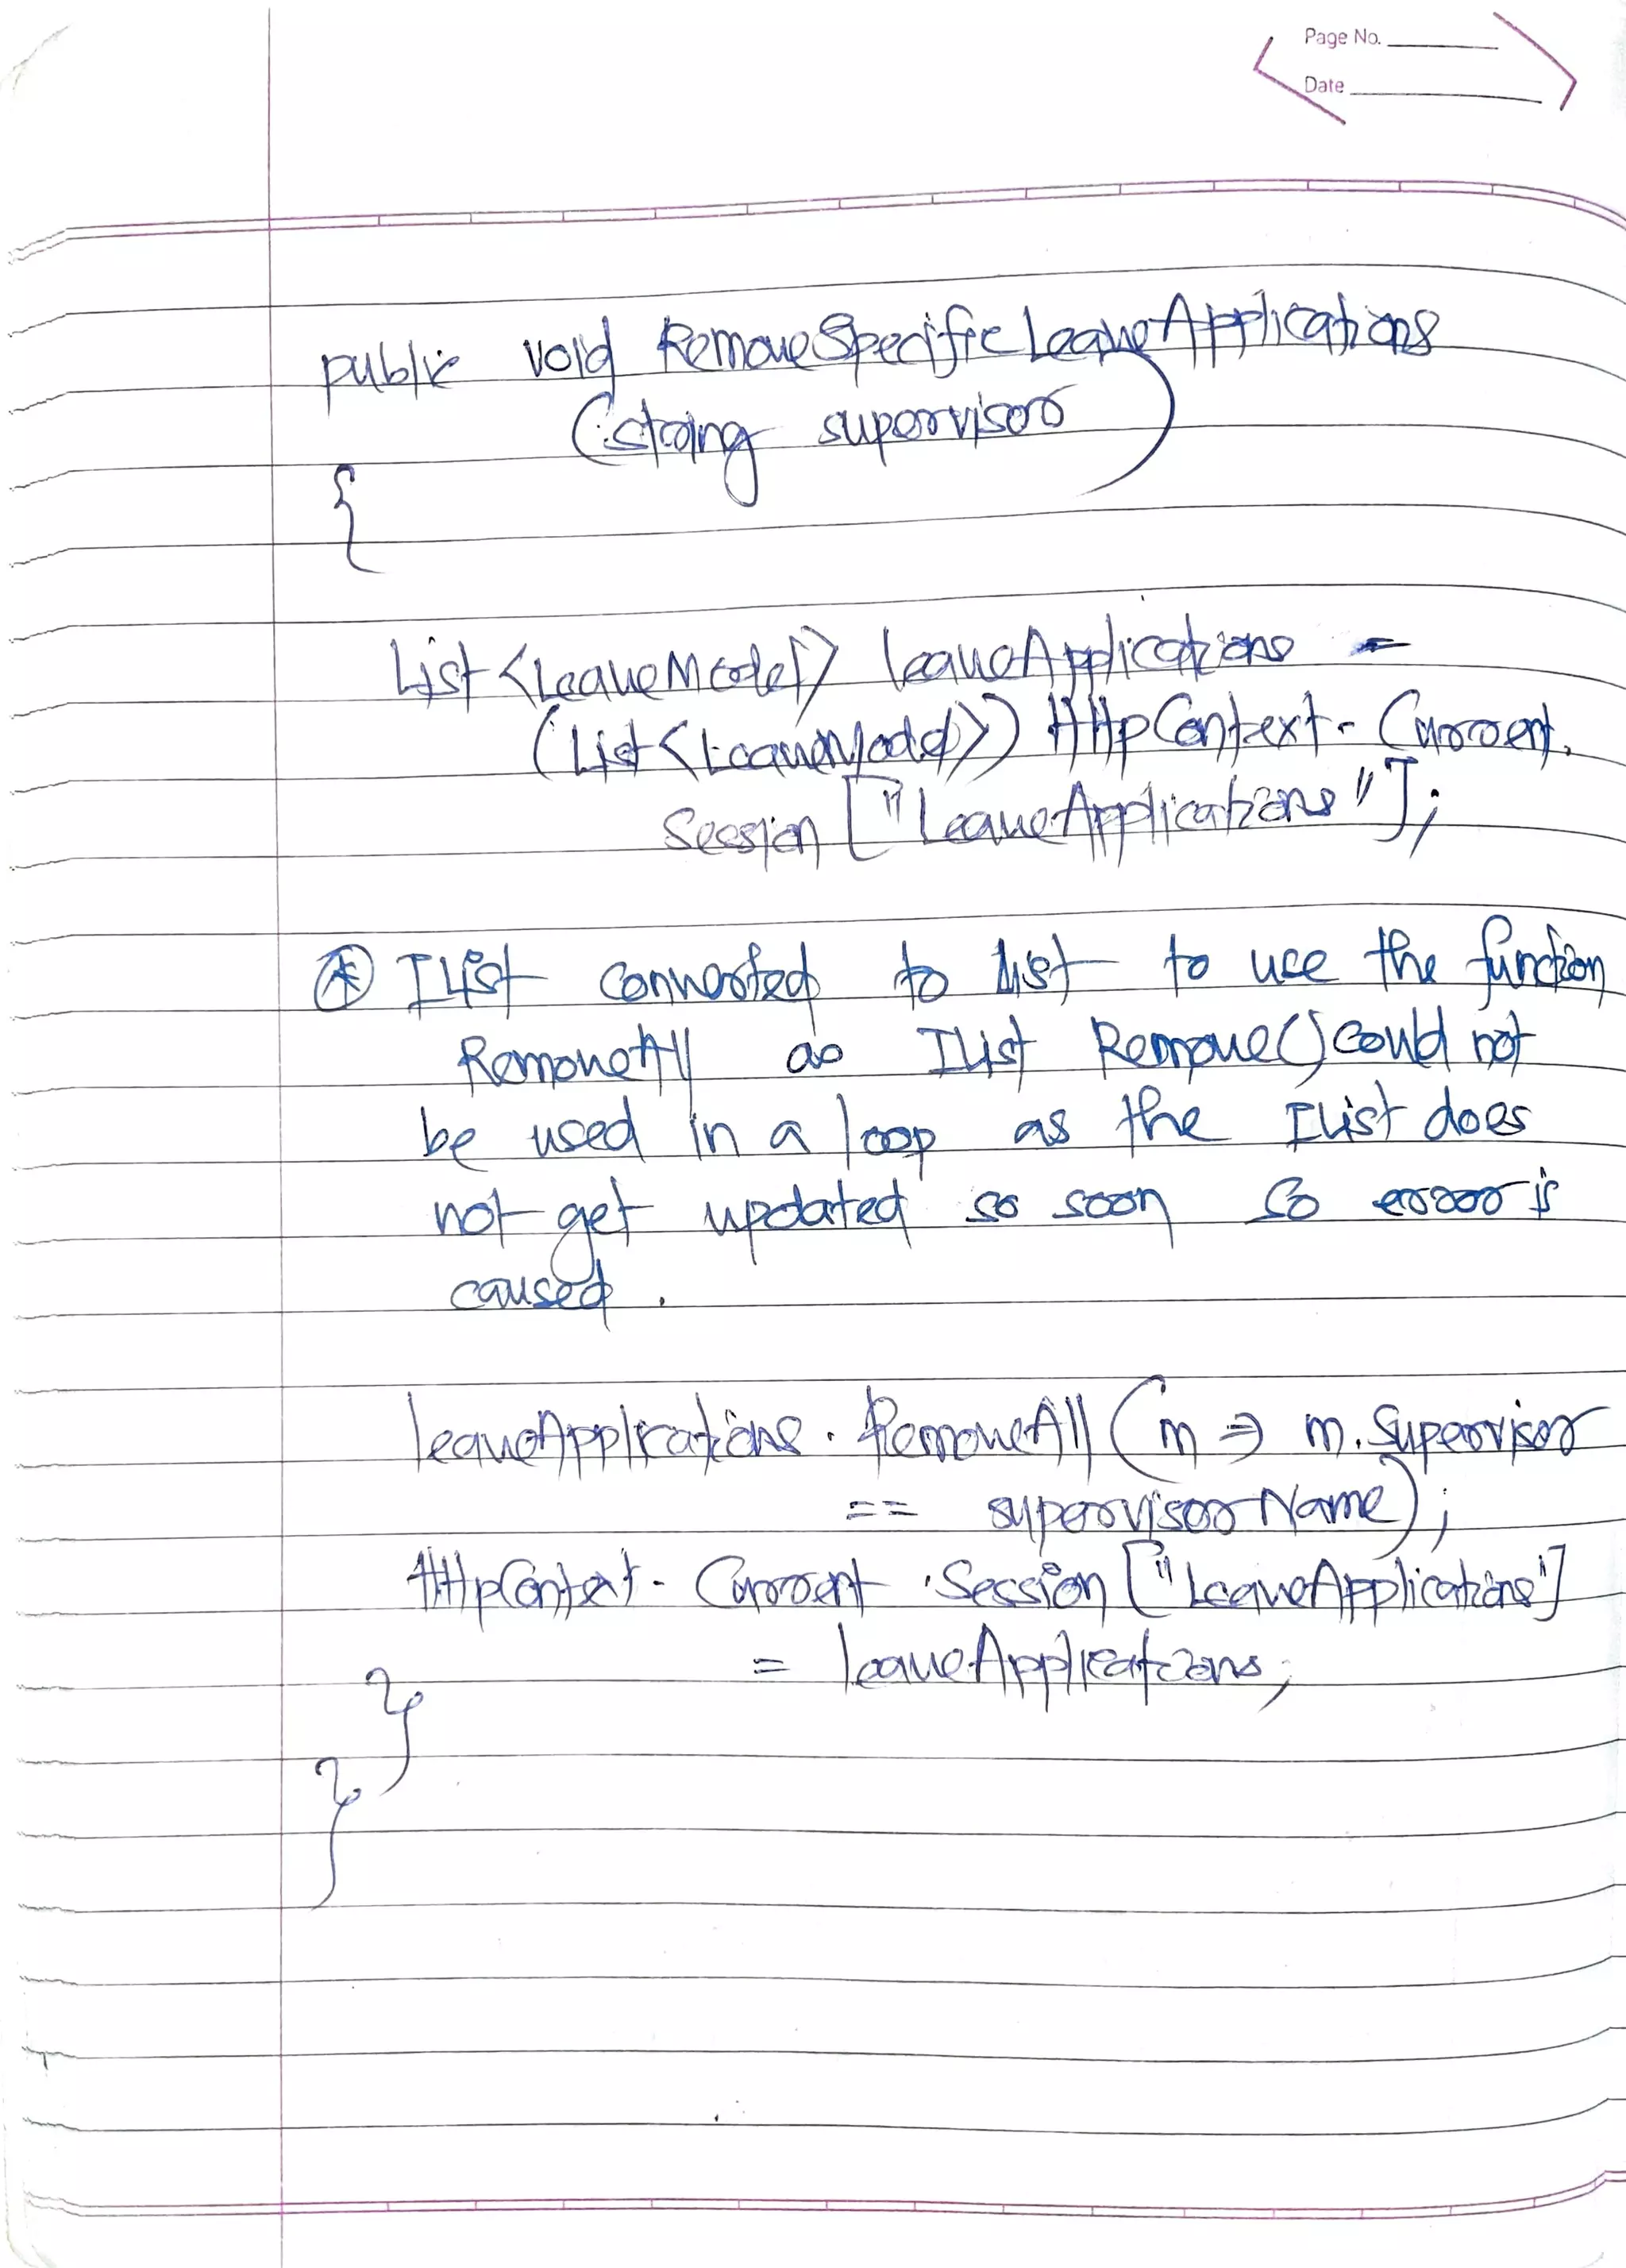 Page No.
Date
public void RemoveSpecificLeaveApplications
(string supervisor)
{
List<LeaveModel> leaveApplications =
(List<LeaveModel>) HttpContext. Current.
Session ["LeaveApplications"];
* IList converted to list to use the function
RemoveAll as IList Remove() could not
be used in a loop as the IList does
not get updated so soon so error is
caused.
leaveApplications. RemoveAll (m => m. Supervisor
== supervisorName);
HttpContext. Current .Session ["LeaveApplications"]
= leaveApplications;
}
}